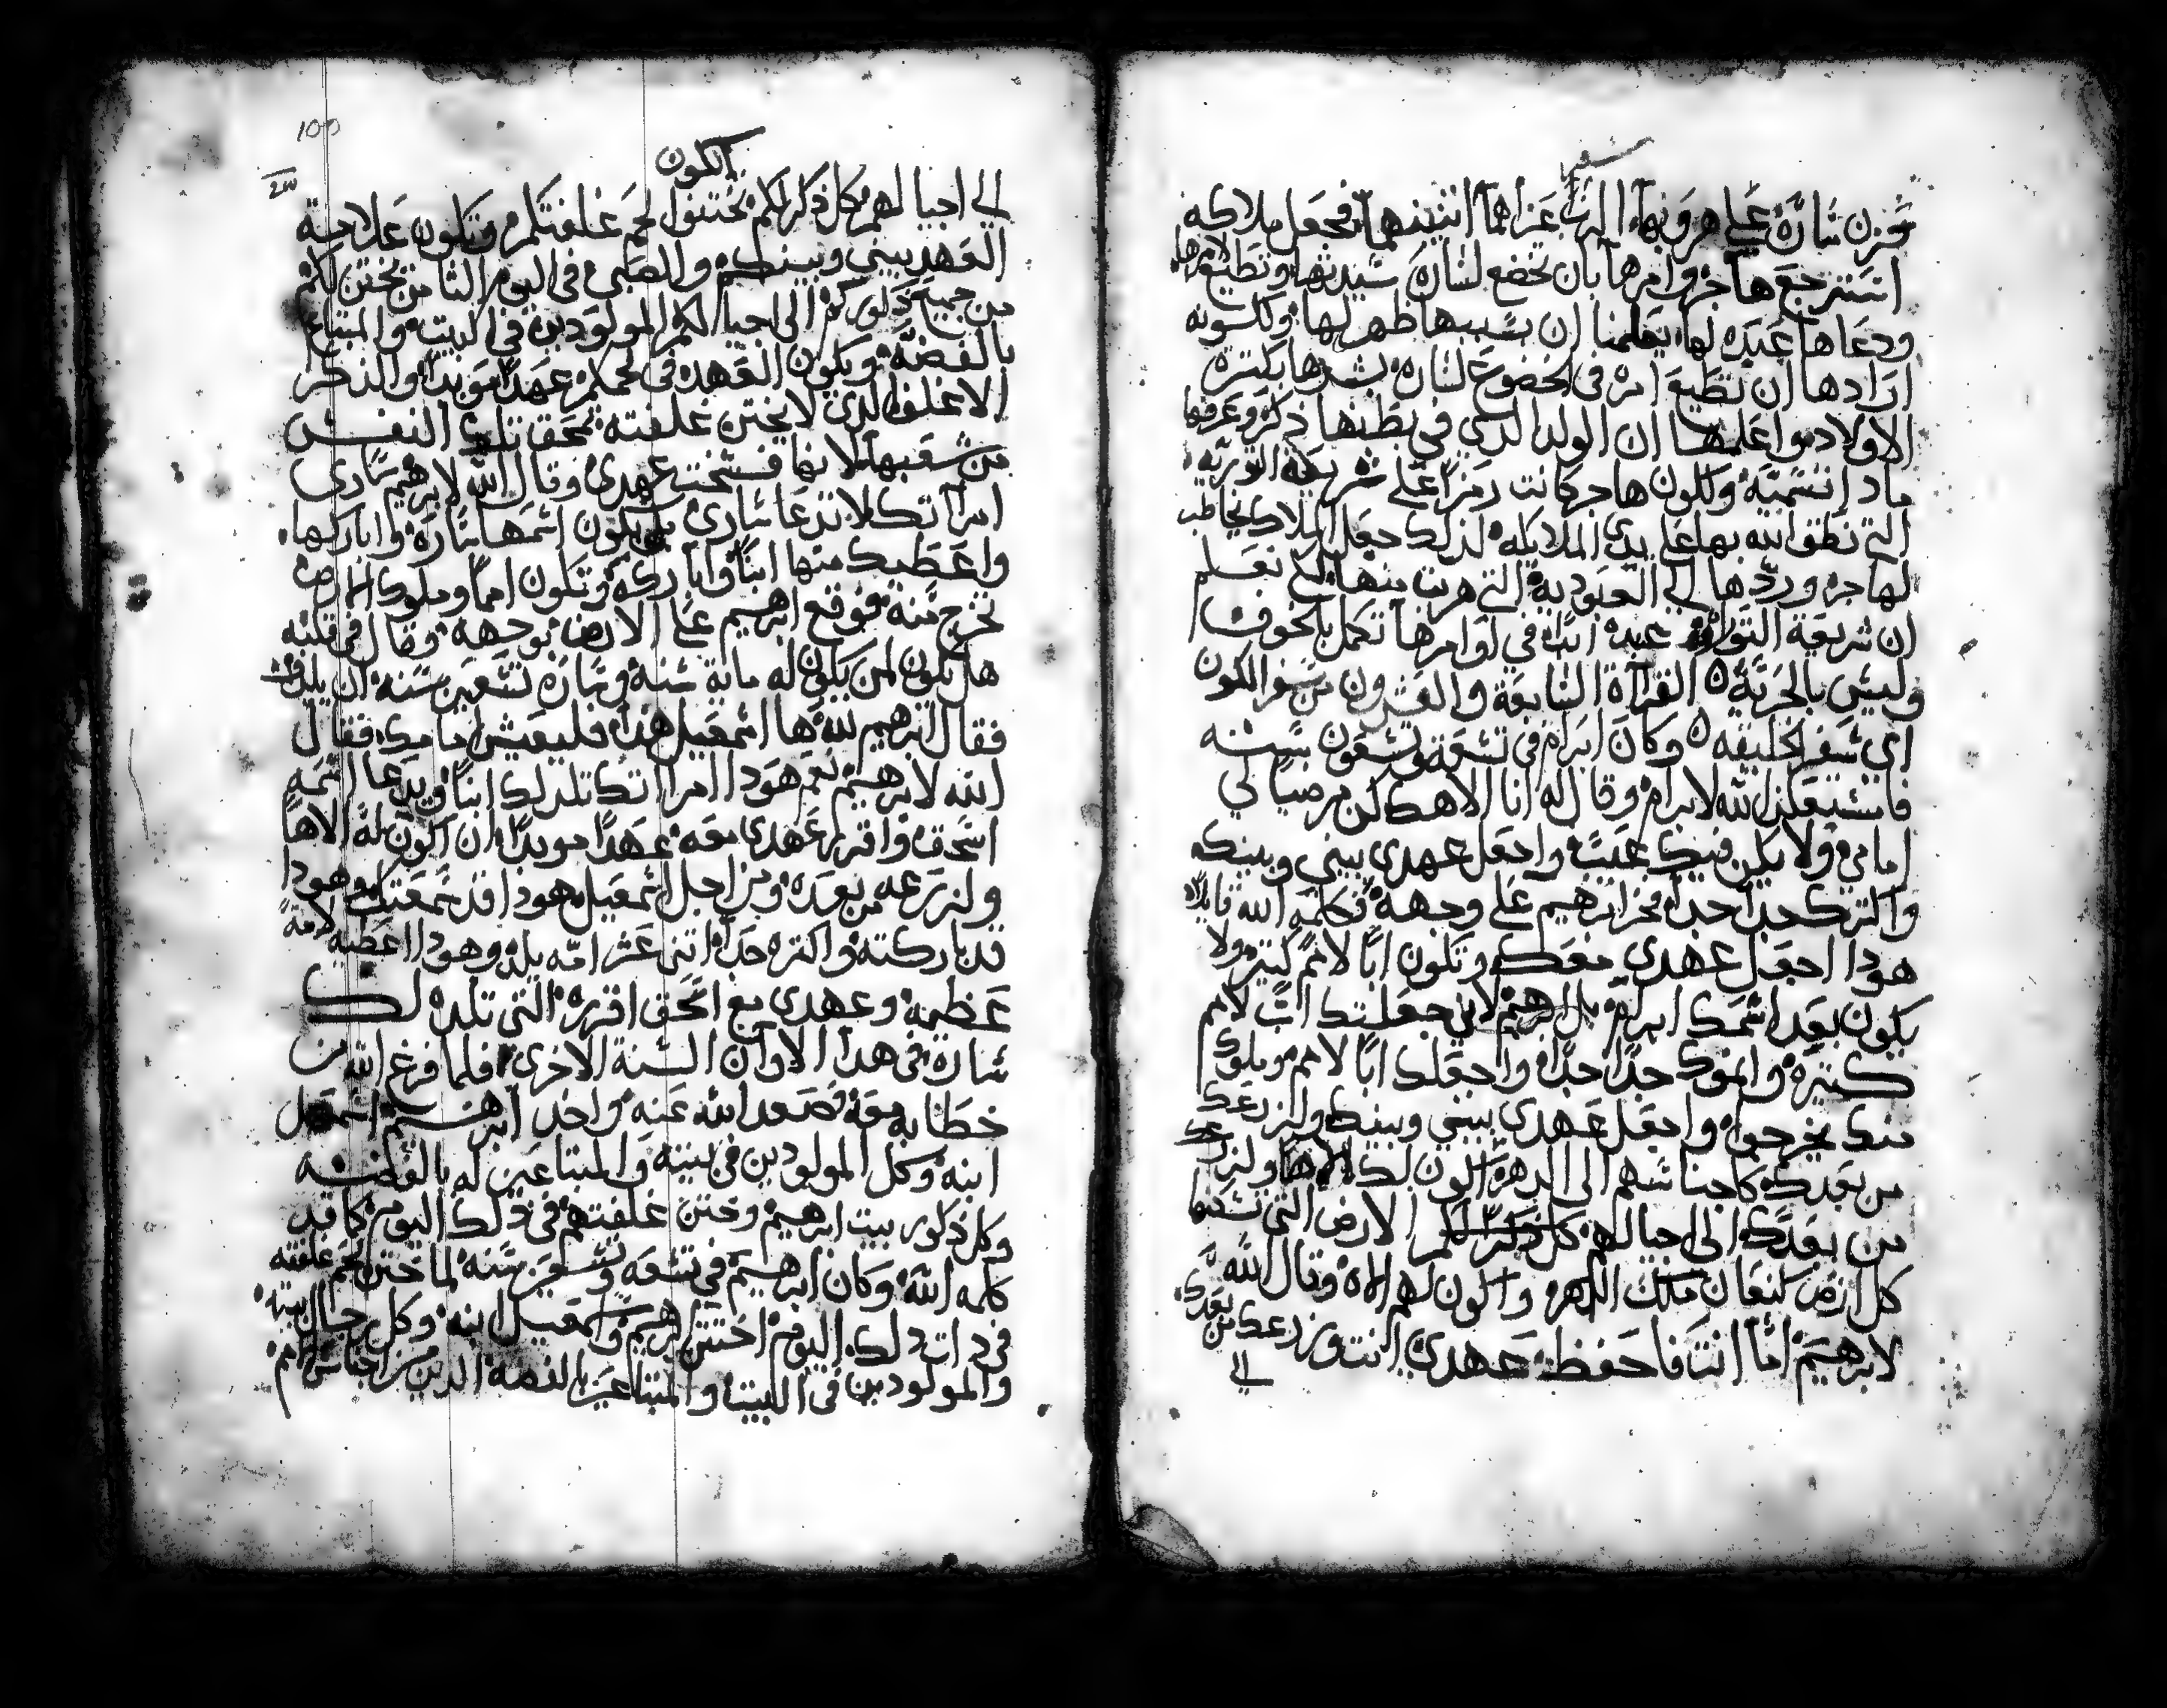 سفر
حزن سارة على هروبها الرب عزاهما اثنينهما فجعل ملاكه
استرجع هاجر وامرها بان تخضع لسارة سيدتها وتطيع امرها
ودعاها عبدة لها يعلمنا ان بسببها ظهر لها ولكونه
ارادها ان تطيع امره في الخضوع لسارة بشرها بكترة
الاولاد واعلمها ان الولد الدي في بطنها ذكر وعرفها
مادا تسميه ولكون هاجر كانت رمزا على شريعة التورية
التي نطق الله بها على يدي الملايكه لذلك جعل الملاك يخاطب
لهاجر وردها الي العبودية التي هربت منها لكي نعلم
ان شريعة التوراة عبدة ابدا في اوامرها تكمل بالخوف
وليس بالحرية ٥ القراة السابعة والعشرون من سفر الكون
اي سفر الخليقه ٥ وكان ابرام في تسعة وتسعون سنه
فاستعلن الله لابرام وقال له انا الاهك كن مرضيا لي
امامي ولا يكن فيك عيب واجعل عهدي بيني وبينك
واكترك جدا جدا فخر ابرهيم على وجهه وكلمه الله قايلا
هودا اجعل عهدي معك وتكون ابا لامم كتيرة ولا
يكون بعد اسمك ابرام بل ابرهيم لاني جعلتك ابا لامم
كتيرة وانموك جدا جدا واجعلك ابا لامم وملوك
منك يخرجوا واجعل عهدي بيني وبينك ولزرعك
من بعدك كاجناسهم الى الدهر اكون لك الاها ولزرعك
من بعدك الى اجيالهم كل ذكر لكم الارض التي تسكنها
كل ارض كنعان ملك الدهر واكون لهم الاه وقال الله
لابرهيم اما انت فاحفظ عهدي انت وزرعك من بعدك
الي
الكون
الي اجيالهم كل ذكر لكم تختنوا لحم غلفتكم وتكون علامة
العهد بيني وبينك والصبي في اليوم الثامن يختن لكم
من جميع ذكوركم الى اجيالكم المولودين في البيت والمبتاع
بالفضة ويكون العهد في لحمكم عهدا موبدا والذكر
الاغلف الدي لا يختن غلفته تمحق تلك النفس
من شعبها لانها فسخت عهدي وقال الله لابرهيم ساري
امراتك لا تدعا ساري بل يكون اسمها سارة واباركها
واعطيك منها ابنا واباركه وتكون امما وملوك الامم
تخرج منه فوقع ابرهيم على الارض بوجهه وقال في قلبه
هل يكون لمن يكون له ماية سنة وسارة تسعين سنه ان يلد
فقال ابرهيم لله ها اسمعيل هدا فليعيش امامك فقال
الله لابرهيم نعم هودا امراتك تلد لك ابنا ويدعا اسمه
اسحق واقرر عهدي معه عهدا موبدا ان اكون له الاها
ولزرعه من بعده ومن اجل اسمعيل هودا قد سمعتك وهودا
قد باركته واكتره جدا اتنى عشر امه يلد وهودا اعطيه لامة
عظيمة وعهدي مع اسحق اقرره التي تلده لك
سارة في هدا الاوان السنة الاخرى فلما فرغ الله من
خطابه معه صعد الله عنه واخد ابرهيم اسمعيل
ابنه وكل المولودين في بيته والمبتاعين له بالفضه
وكل ذكور بيت ابرهيم وختن غلفتهم في ذلك اليوم كما قد
كلمه الله وكان ابرهيم في تسعه وتسعين سنه لما ختن لحم غلفته
في دات دلك اليوم اختتن ابرهيم واسمعيل ابنه وكل رجال بيته
والمولودين في البيت والمبتاعين بالفضة الدين من اجناس الامم